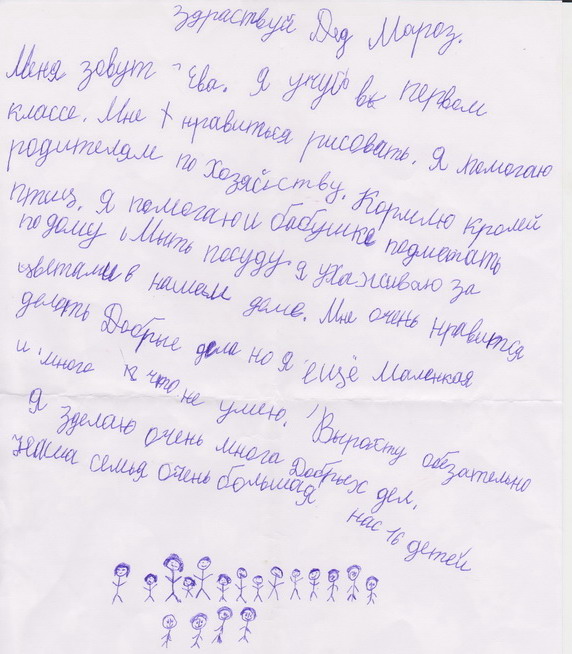 здраствуй Дед Мароз.
Меня зовут Ева. Я учусь в первом
классе. Мне нравиться рисовать. Я помогаю
родителям по хозяйству. Кормлю кролей
птиц. Я помогаю и бабушке подметать
по дому, Мыть посуду я ухаживаю за
цветами в нашем доме. Мне очень нравится
делать Добрые дела но я ещё Маленкая
и много что не умею. Вырасту обезательно
Я зделаю очень многа Добрых дел.
Наша семья очень большая нас 16 детей